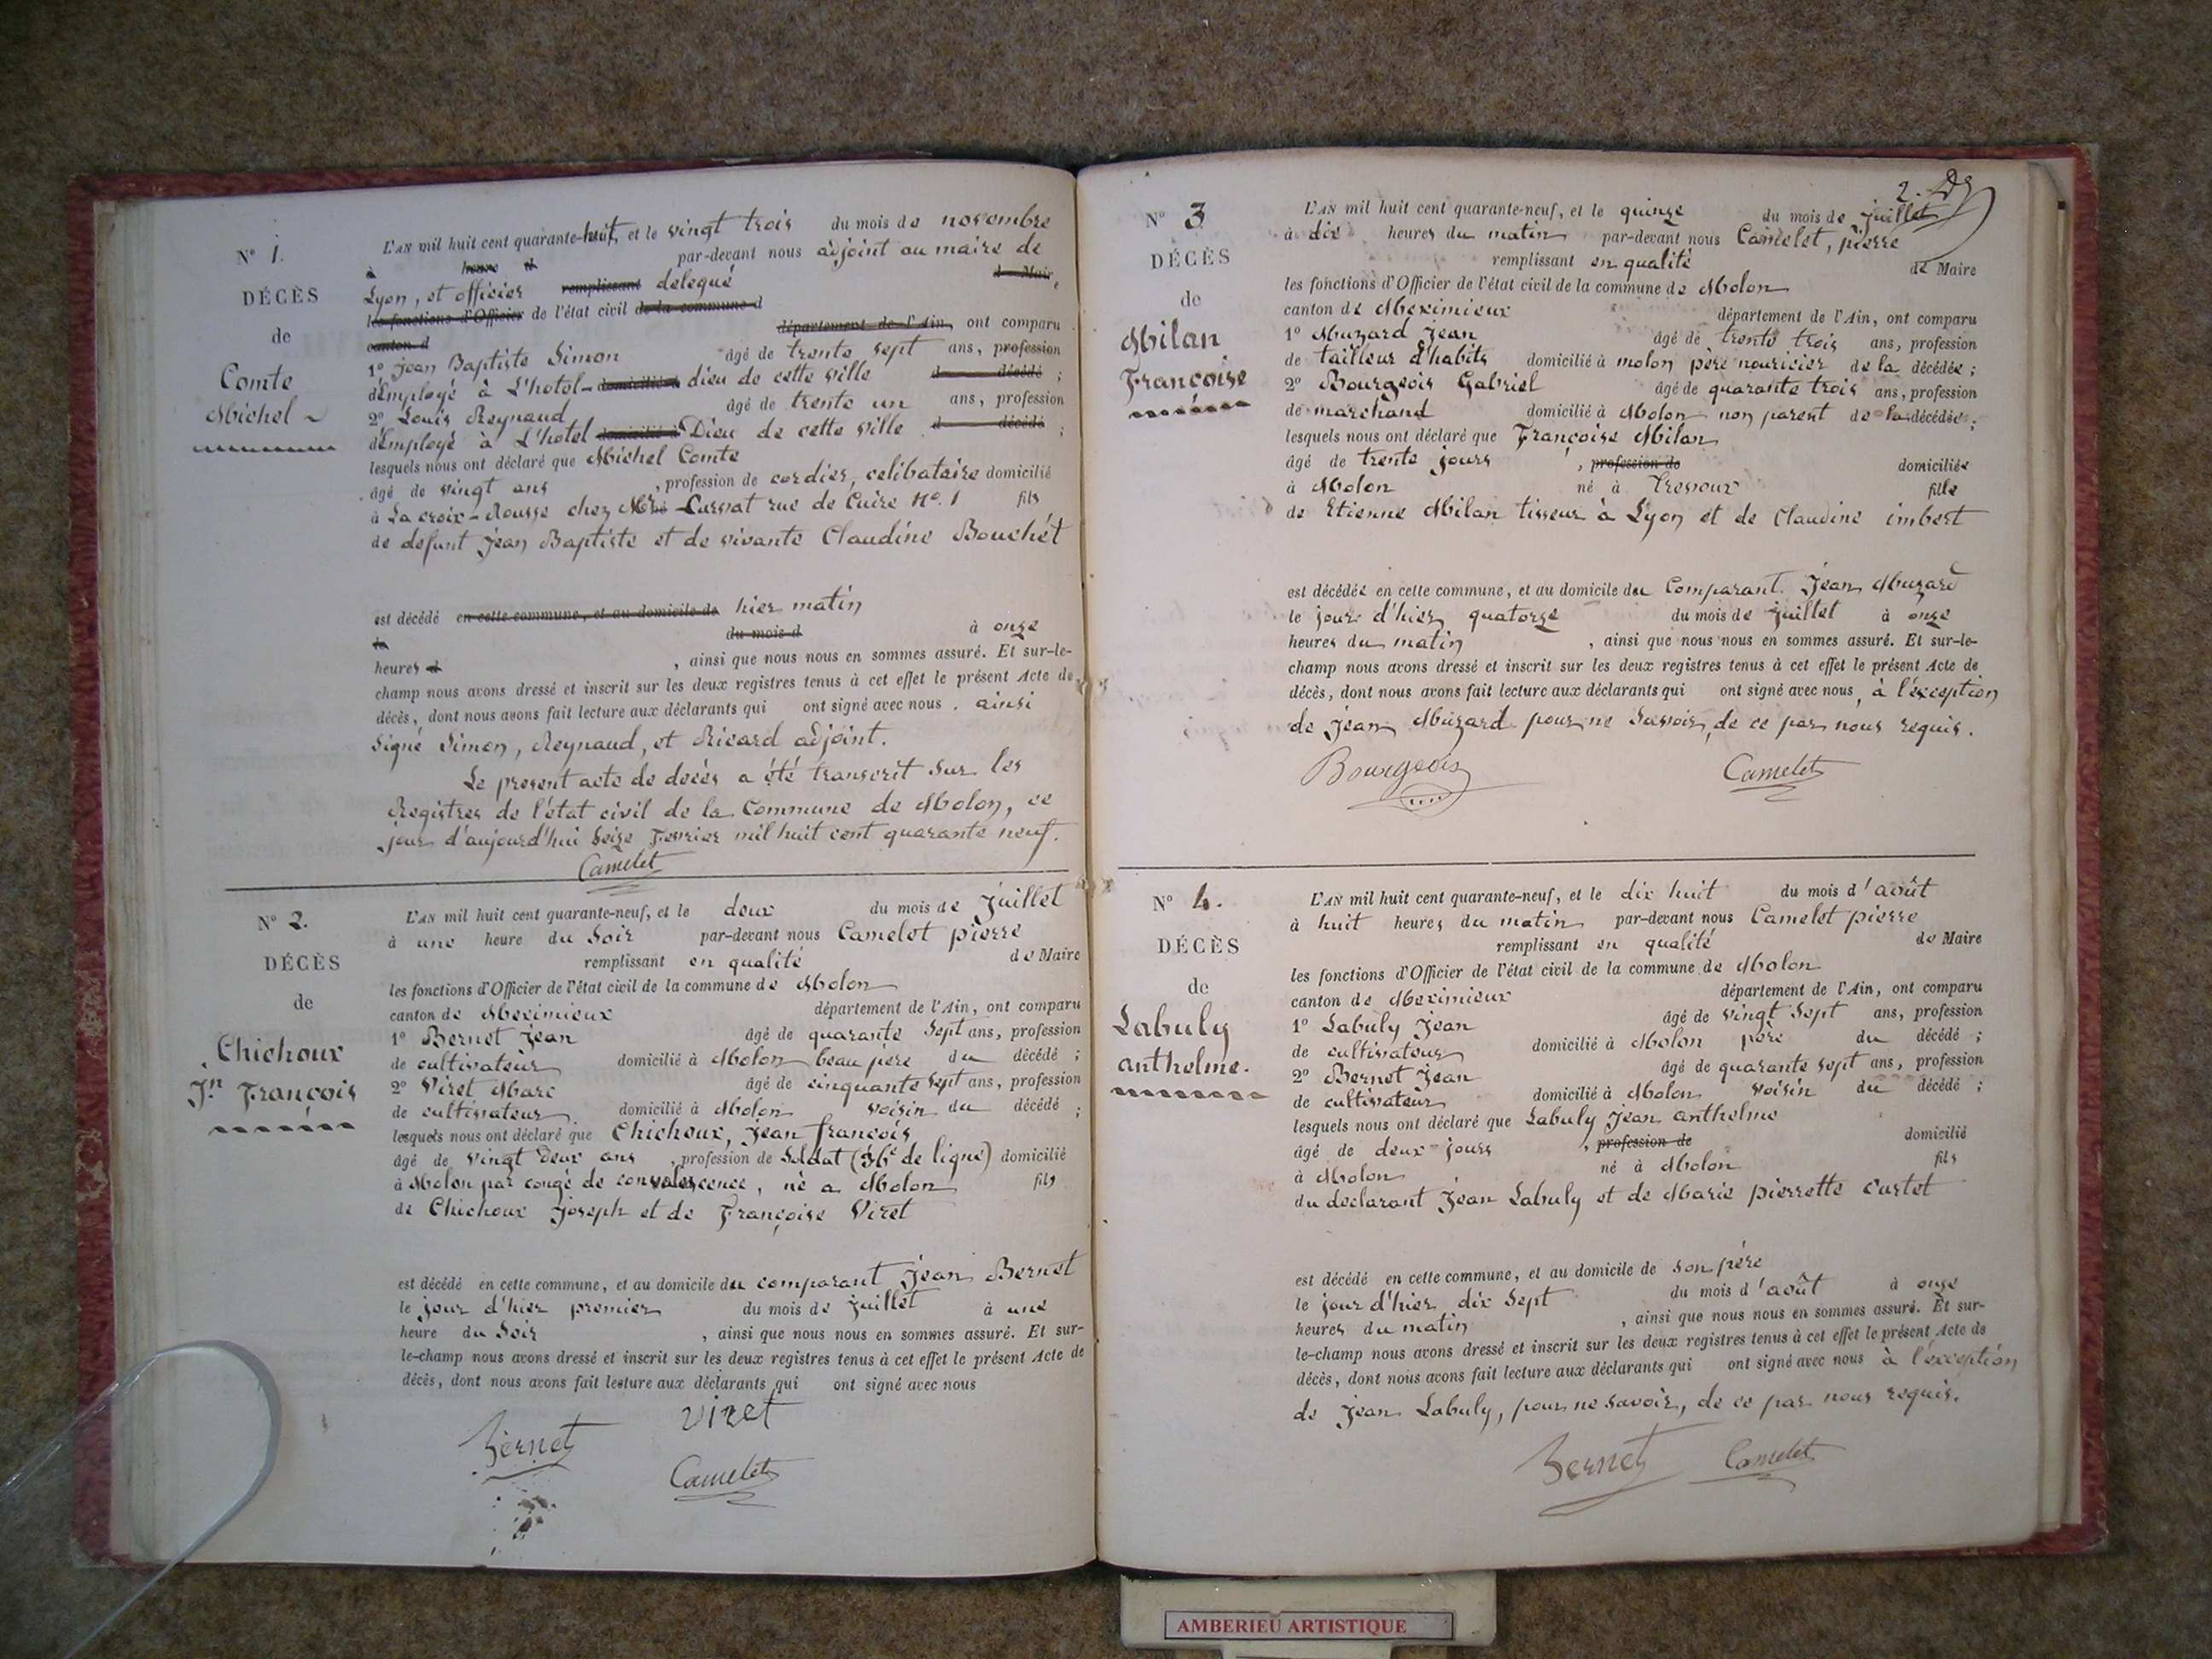 N° 1.
DÉCÈS
de
Comte
Michel
L'AN mil huit cent quarante-huit, et le vingt trois du mois de novembre
à heure d par-devant nous adjoint au maire de
Lyon, et officier remplissant delegué d Mair
les fonctions d'Officier de l'état civil de la commune d
canton d département de l'Ain, ont comparu
1° jean Baptiste Simon âgé de trente sept ans, profession
d'Employé à L'hotel- domicilié à dieu de cette ville d décédé ;
2° Louis Reynaud âgé de trente un ans, profession
d'Employé à L'hotel domicilié à Dieu de cette ville d décédé ;
lesquels nous ont déclaré que Michel Comte
âgé de vingt ans , profession de cordier, celibataire domicilié
à La croix-Rousse chez rue de Cuire N°. 1 fils
de defunt Jean Baptiste et de vivante Claudine Bouchét
est décédé en cette commune, et au domicile de hier matin
le du mois d à onze
heures d , ainsi que nous nous en sommes assuré. Et sur-le-
champ nous avons dressé et inscrit sur les deux registres tenus à cet effet le présent Acte de
décès, dont nous avons fait lecture aux déclarants qui ont signé avec nous . ainsi
Signé Simon, Reynaud, et Ricard adjoint.
Le present acte de decès a été transcrit sur les
Registres de l'état civil de la Commune de Molon, ce
jour d'aujourd'hui Seize Fevrier mil huit cent quarante neuf.
Camelet
N° 2.
DÉCÈS
de
Chichoux
Jn. François
L'AN mil huit cent quarante-neuf, et le deux du mois de Juillet
à une heure du Soir par-devant nous Camelet pierre
remplissant en qualité de Maire
les fonctions d'Officier de l'état civil de la commune de Molon
canton de Meximieux département de l'Ain, ont comparu
1° Bernet Jean âgé de quarante Sept ans, profession
de cultivateur domicilié à Molon beau père du décédé ;
2° Viret Marc âgé de cinquante Sept ans, profession
de cultivateur domicilié à Molon voisin du décédé ;
lesquels nous ont déclaré que Chichoux, Jean françois
âgé de vingt deux ans , profession de Soldat (36e de ligne) domicilié
à Molon par congé de convalescence, né a Molon fils
de Chichoux Joseph et de Françoise Viret
est décédé en cette commune, et au domicile du comparant Jean Bernet
le jour d'hier premier du mois de juillet à une
heure du Soir , ainsi que nous nous en sommes assuré. Et sur-
le-champ nous avons dressé et inscrit sur les deux registres tenus à cet effet le présent Acte de
décès, dont nous avons fait lecture aux déclarants qui ont signé avec nous
Bernet viret
Camelet
2.
N° 3
DÉCÈS
de
Milan
Françoise
L'AN mil huit cent quarante-neuf, et le quinze du mois de juillet
à dix heures du matin par-devant nous Camelet, pierre
remplissant en qualité de Maire
les fonctions d'Officier de l'état civil de la commune de Molon
canton de Meximieux département de l'Ain, ont comparu
1° Muzard Jean âgé de trente trois ans, profession
de tailleur d'habits domicilié à molon père nouricier de la décédée ;
2° Bourgeois Gabriel âgé de quarante trois ans, profession
de marchand domicilié à Molon non parent de la décédée ;
lesquels nous ont déclaré que Françoise Milan
âgé de trente jours , profession de domiciliée
à Molon né à Trevoux fille
de Etienne Milan tisseur à Lyon et de Claudine imbert
est décédée en cette commune, et au domicile du Comparant Jean Muzard
le jour d'hier quatorze du mois de juillet à onze
heures du matin , ainsi que nous nous en sommes assuré. Et sur-le-
champ nous avons dressé et inscrit sur les deux registres tenus à cet effet le présent Acte de
décès, dont nous avons fait lecture aux déclarants qui ont signé avec nous, à l'éxception
de Jean Muzard pour ne Savoir, de ce par nous requis.
Bourgeois Camelet
N° 4.
DÉCÈS
de
Labuly
anthelme.
L'AN mil huit cent quarante-neuf, et le dix huit du mois d'août
à huit heures du matin par-devant nous Camelet pierre
remplissant en qualité de Maire
les fonctions d'Officier de l'état civil de la commune de Molon
canton de Meximieux département de l'Ain, ont comparu
1° Labuly Jean âgé de vingt Sept ans, profession
de cultivateur domicilié à Molon père du décédé ;
2° Bernet Jean âgé de quarante sept ans, profession
de cultivateur domicilié à Molon voisin du décédé ;
lesquels nous ont déclaré que Labuly Jean anthelme
âgé de deux jours , profession de domicilié
à Molon né à Molon fils
du declarant Jean Labuly et de Marie pierrette Curtet
est décédé en cette commune, et au domicile de son père
le jour d'hier dix Sept du mois d'août à onze
heures du matin , ainsi que nous nous en sommes assuré. Et sur-
le-champ nous avons dressé et inscrit sur les deux registres tenus à cet effet le présent Acte de
décès, dont nous avons fait lecture aux déclarants qui ont signé avec nous à l'éxception
de Jean Labuly, pour ne savoir, de ce par nous requis.
Bernet Camelet
AMBERIEU ARTISTIQUE